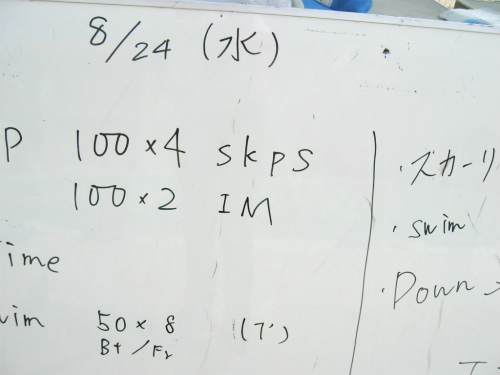 8/24 (水)
P 100×4 SKPS
100×2 IM
ime
wim 50×8 (1')
Bt/Fr
・スカーリ
・swim
・Down